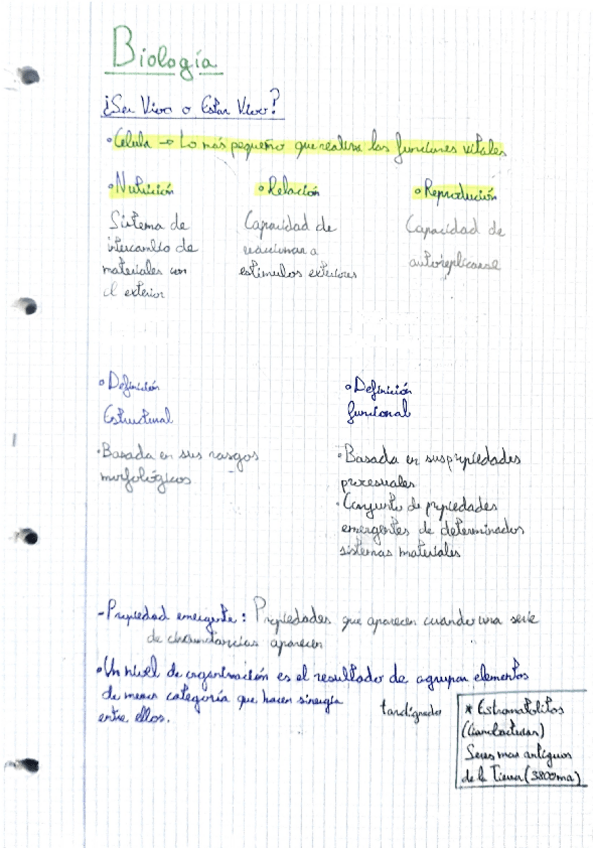 Biología
¿Ser Vivo o Estar Vivo?
•Célula → Lo más pequeño que realiza las funciones vitales
•Nutrición
Sistema de
intercambio de
materiales con
el exterior
•Relación
Capacidad de
reaccionar a
estimulos exteriores
•Reproducción
Capacidad de
autoreplicarse
•Definición
Estructural
•Basada en sus rasgos
morfológicos
•Definición
funcional
•Basada en sus propiedades
procesuales
•Conjunto de propiedades
emergentes de determinados
sistemas materiales
-Propiedad emergente: Propiedades que aparecen cuando una serie
de circunstancias aparecen
•Un nivel de organización es el resultado de agrupar elementos
de menor categoría que hacen sinergia
entre ellos.
tardígrado
* Estromatolitos
(Cianobacterias)
Seres mas antiguos
de la Tierra (3800ma)